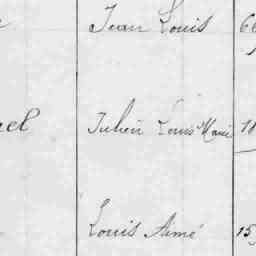 Jean Louis
Julien Louis Marie
Louis Aimé 15